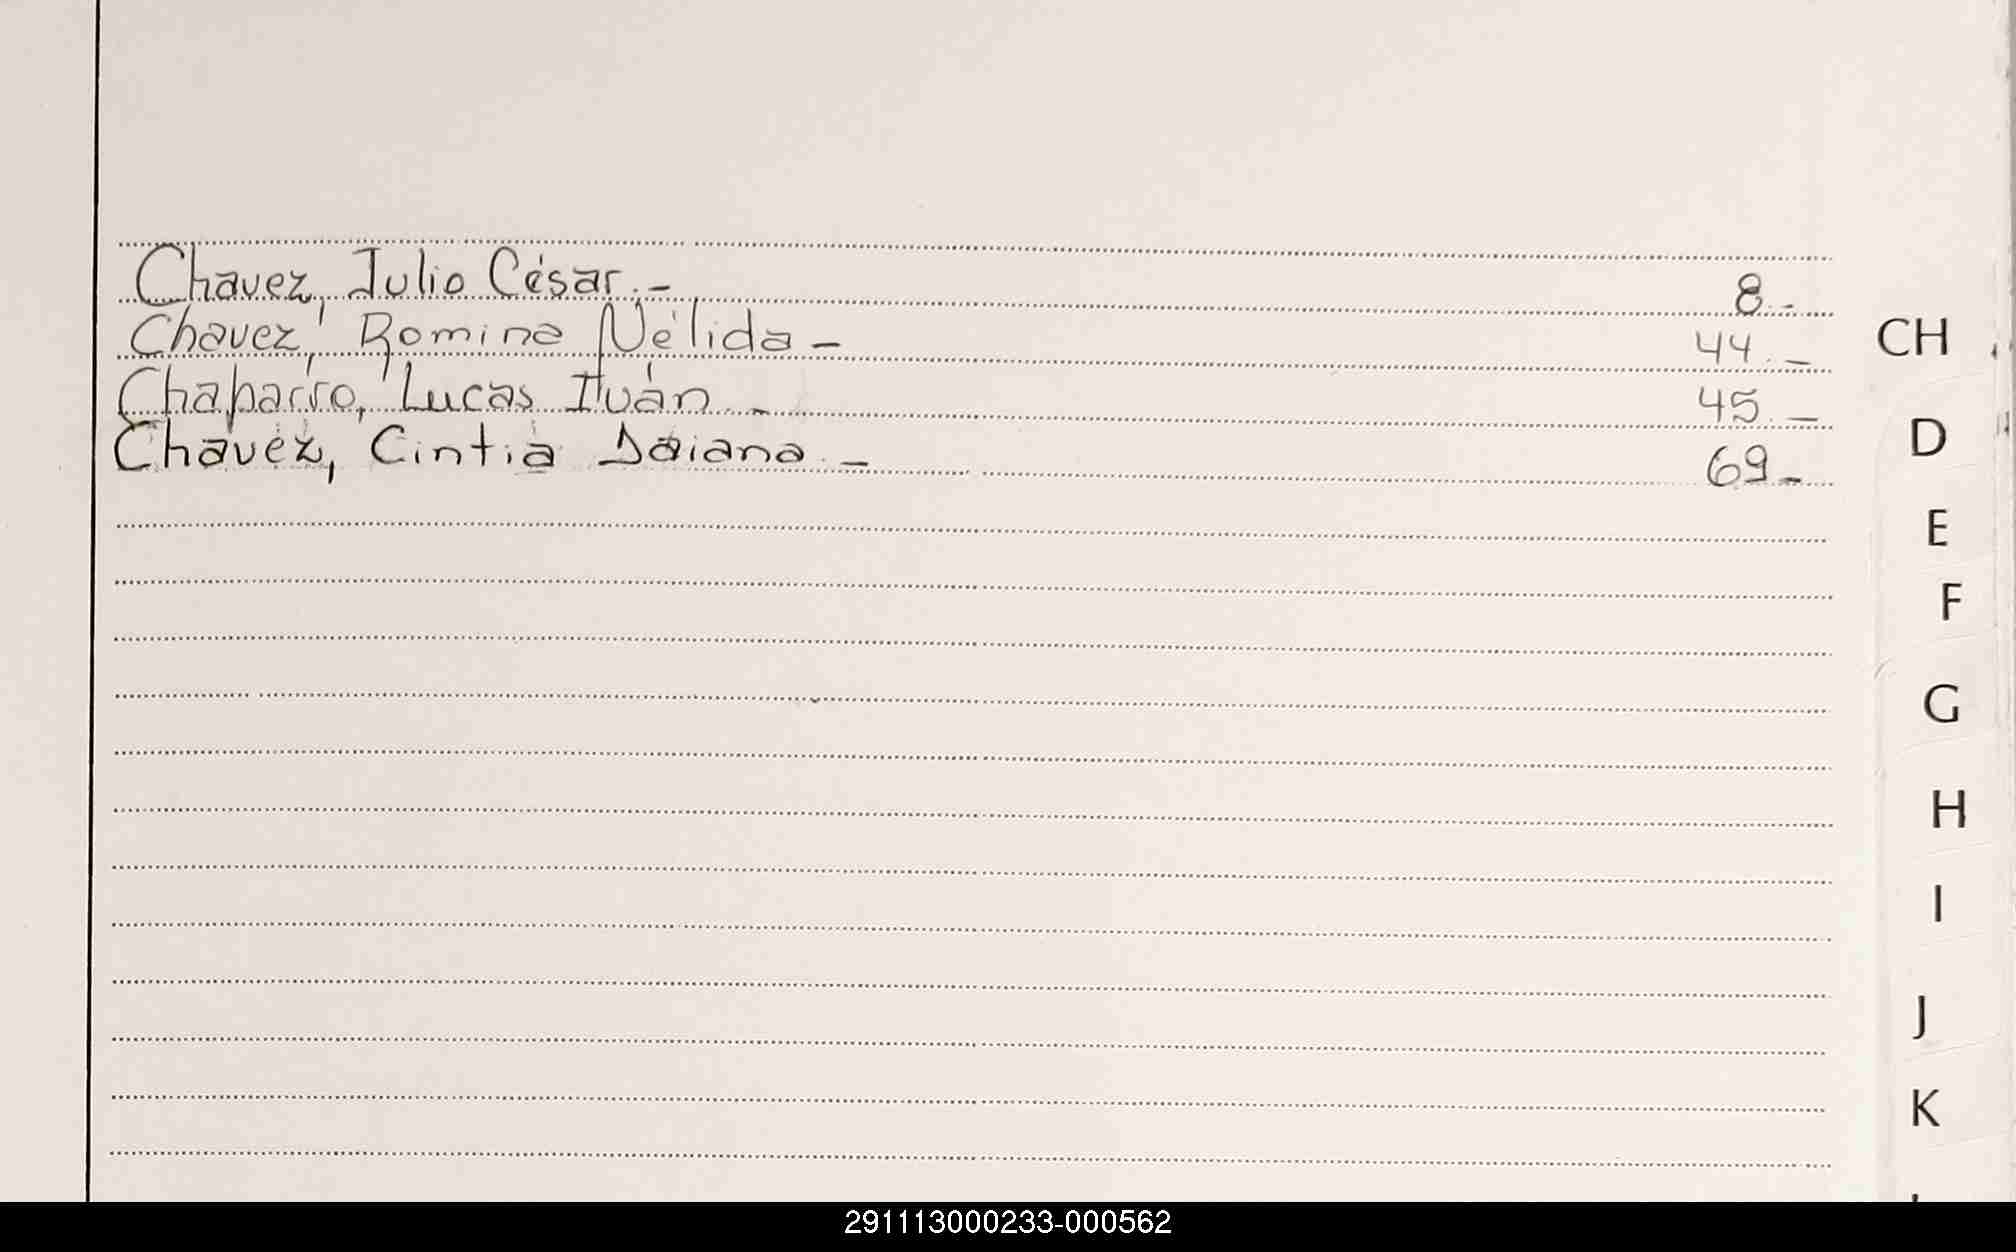 Chavez, Julio César.- 8.-
Chavez, Romina Nélida - 44.-
Chaparro, Lucas Iván - 45.-
Chavez, Cintia Daiana.- 69-
CH
D
E
F
G
H
I
J
K
291113000233-000562